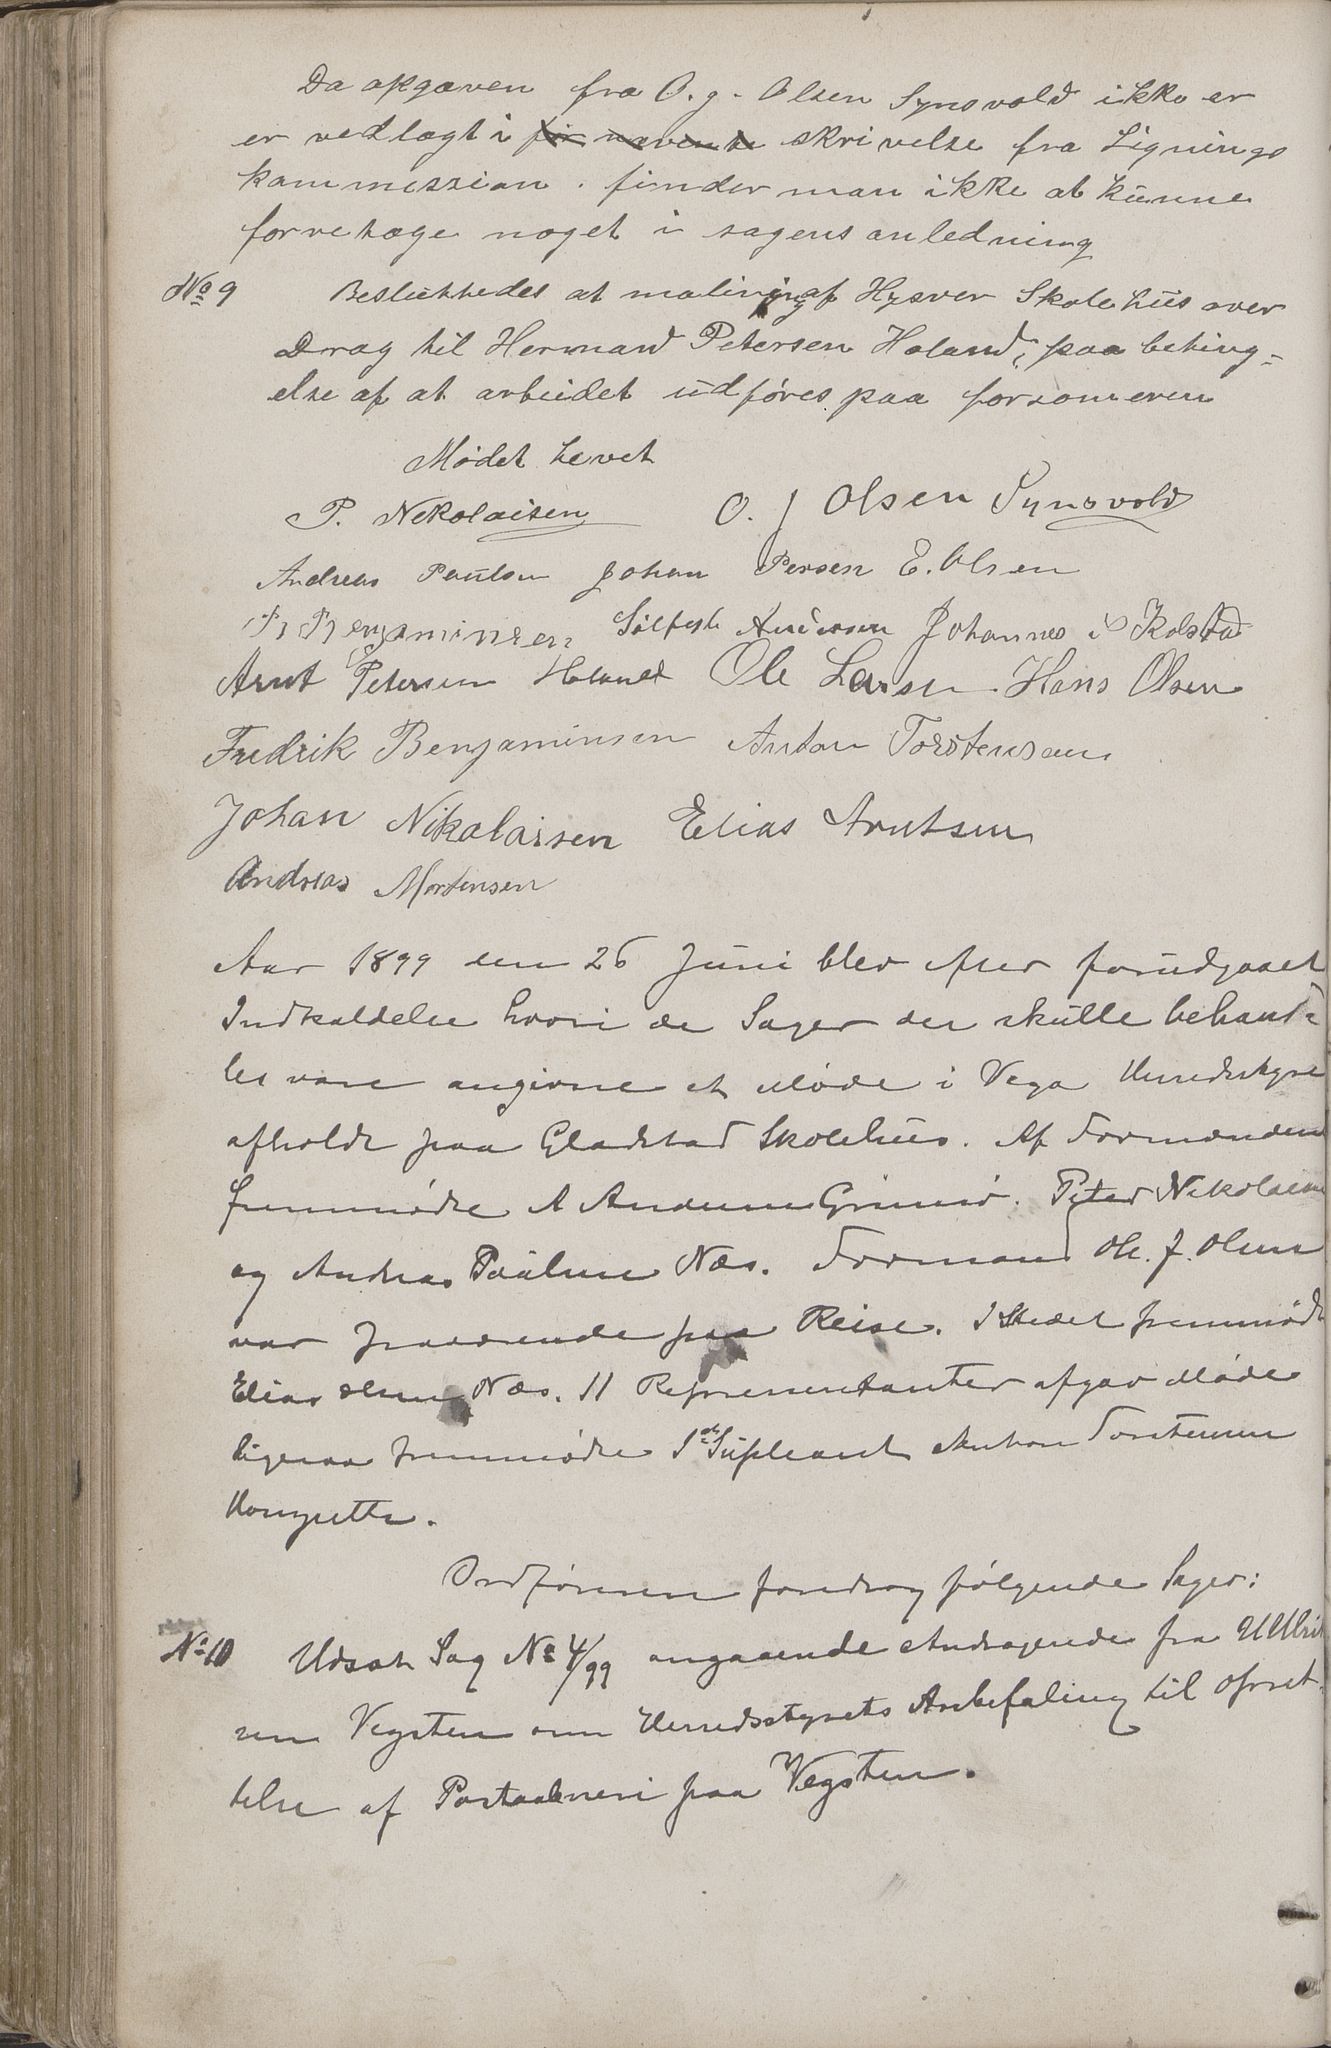 Da opgaven fra O. J. Olsen Synsvold ikke er
er vedlagt i før nævente skrivelse fra Lignings
kommession. finder man ikke at kunne
forretage noget i sagens anledning
No 9 Besluttedes at maling af Hysvær Skolehus over
Drag til Hermand Petersen Holand, paa beting-
else af at arbeidet udføres paa forsomeren
Mødet hevet
P. Nekolaisen O. J Olsen Synsvold
Andreas Paulsen Johan Persen E. Olsen
B Benjaminsen Sølfest Andersen Johannes Kolstad
Arnt Petersen Holand Ole Larsen Hans Olsen
Fredrik Benjaminsen Anton Torstensen
Johan Nikolaisen Elias Arntsen
Andreas Mortensen
Aar 1899 den 26 Juni blev efter forudgaaet
Indkaldelse hvori de Sager der skulle behand-
les vare angivne et Møde i Vega Herredsstyre
afholdt paa Gladstad Skolehus. Af Formændene
fremmødte A Andersen Grimsø. Peter Nikolaisen
og Andreas Paulsen Næs. Formand Ole. J. Olsen
var fraværende paa Reise. I Stedet fremmødte
Elias Olsen Næs. 11 Representanter afgav Møde
ligesaa fremmødte 1ste Supleant Anton Torstensen
Ordføreren foredrog følgende Sager:
No 10 Udsat Sag No 4/99 angaaende Andragende fra U Ulrik
sen Vegsten om Herredsstyrets Anbefaling til Opret-
telse af Postaabneri paa Vegsten.